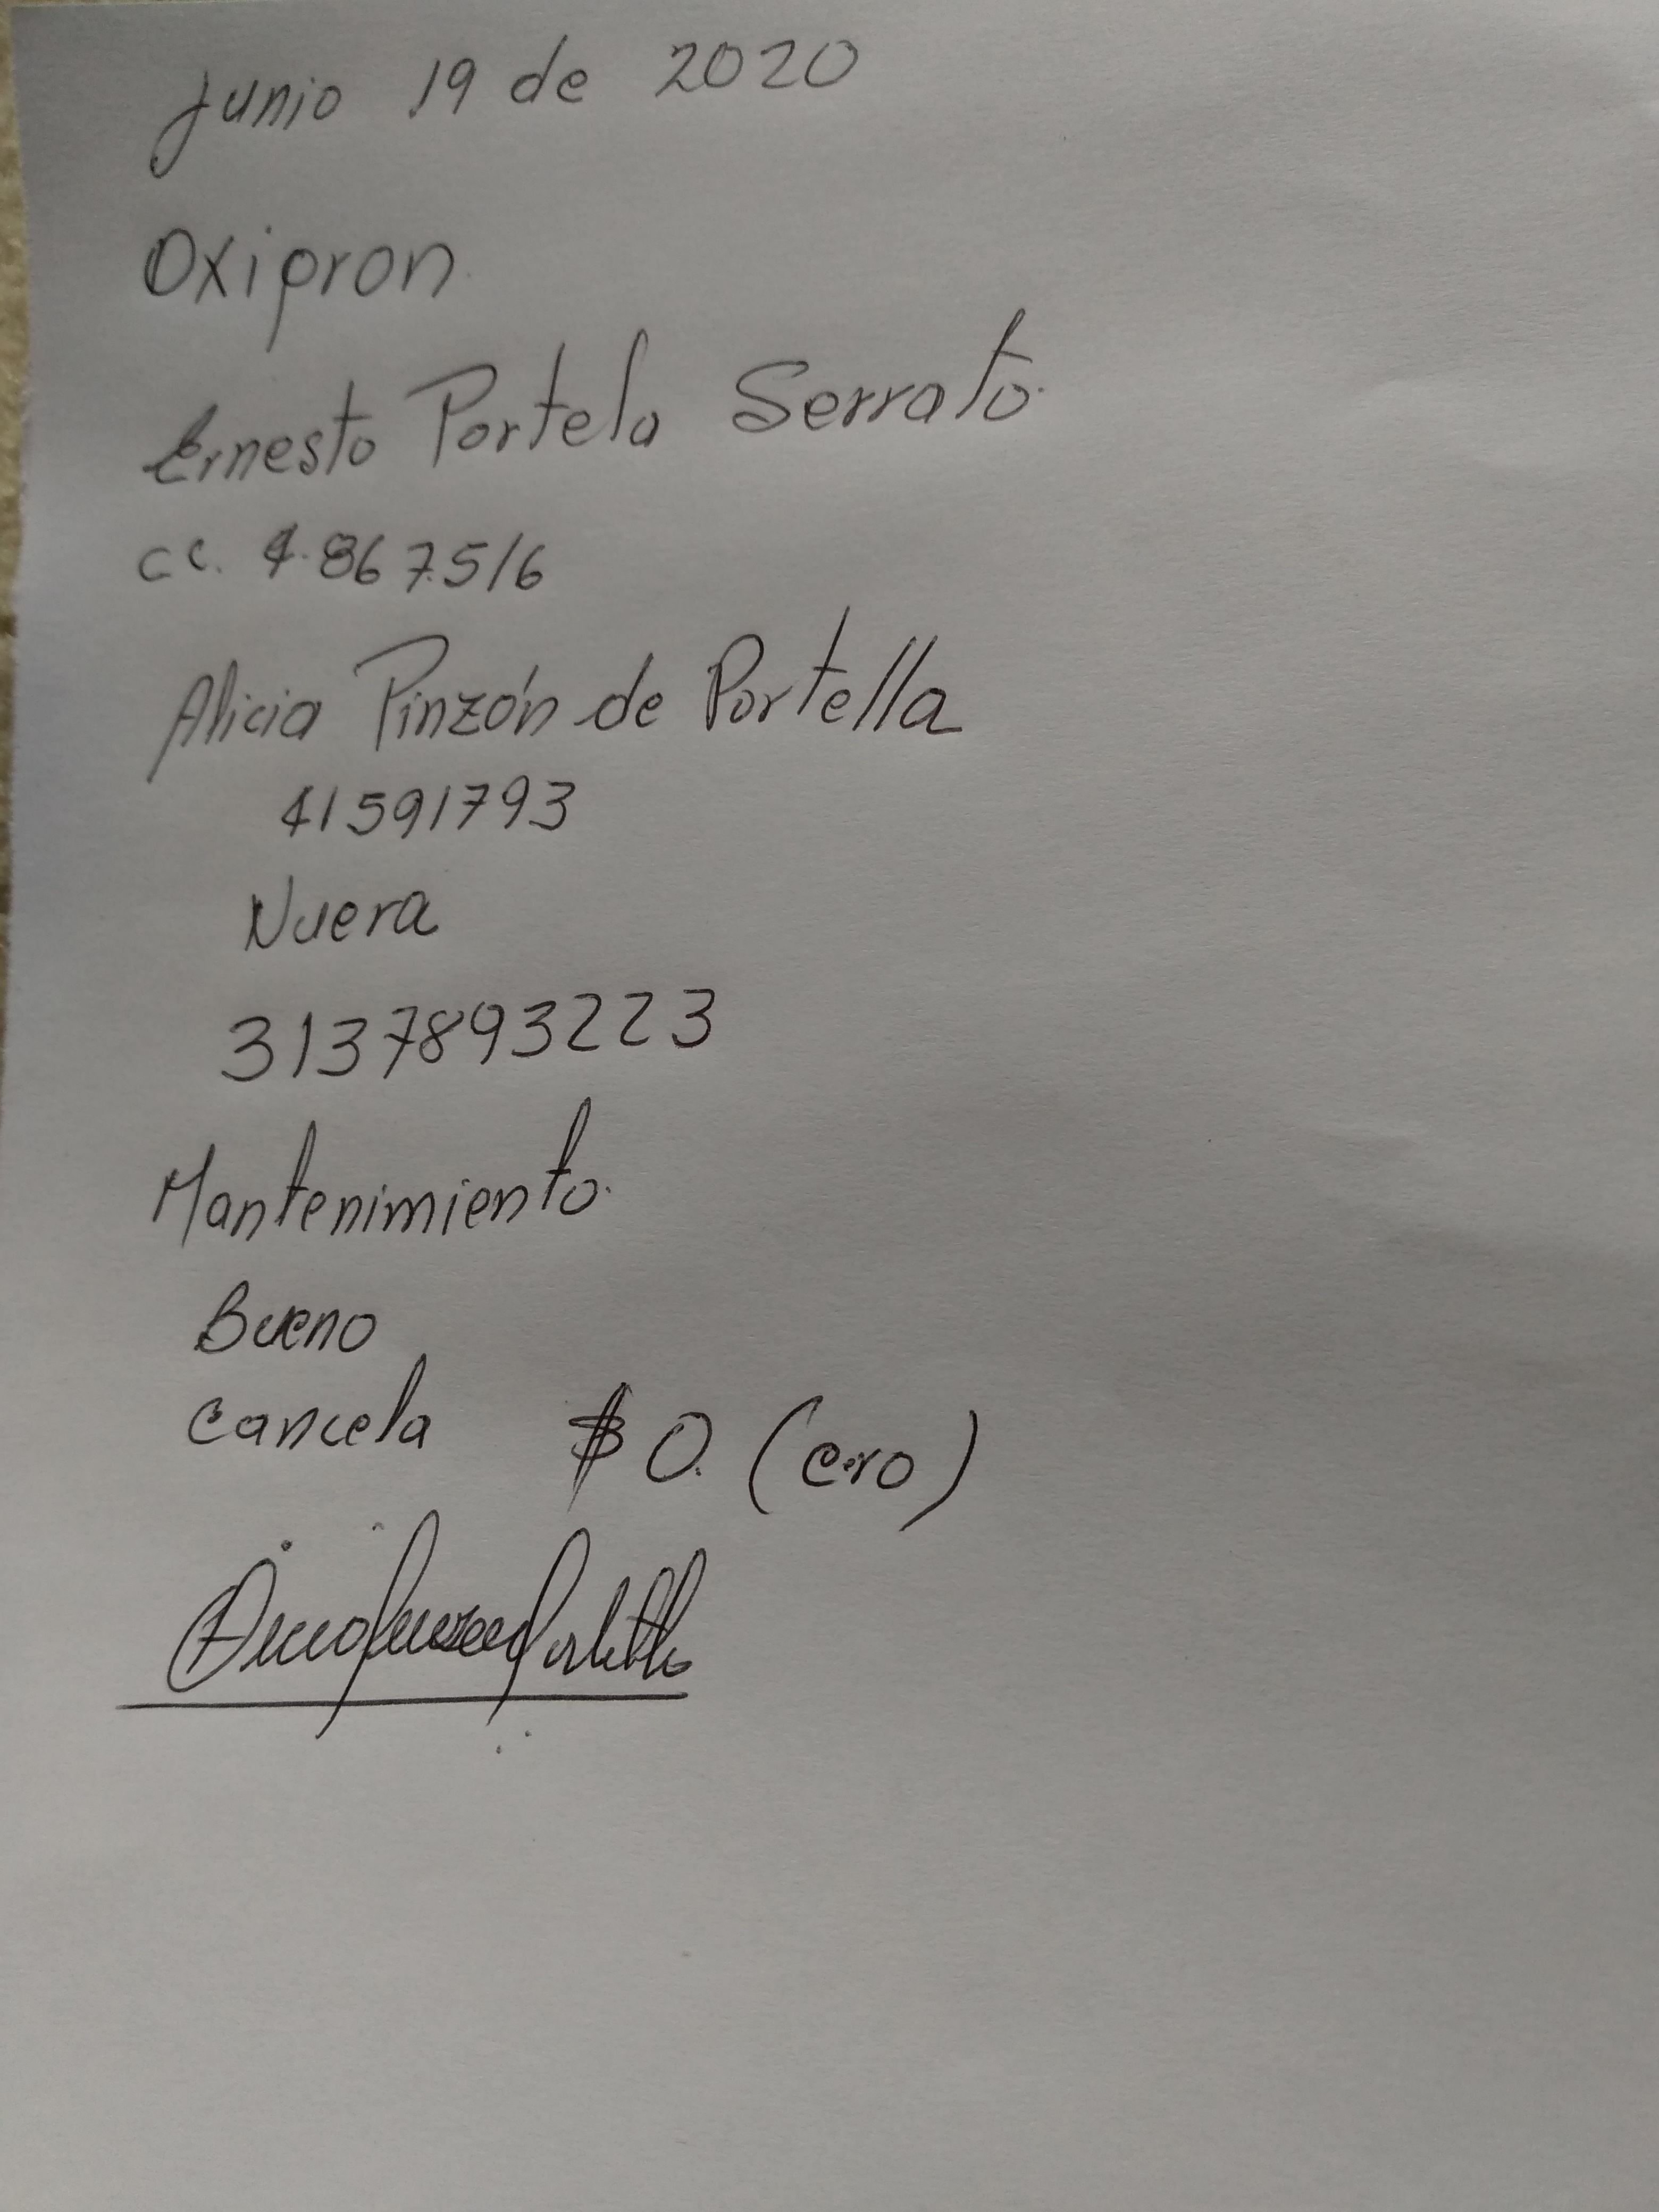 Junio 19 de 2020
Oxipron
Ernesto Portela Serrato.
cc. 4.867.516
Alicia Pinzón de Portella
41591793
Nuera
3137893223
Mantenimiento.
Bueno
Cancela $0. (cero)